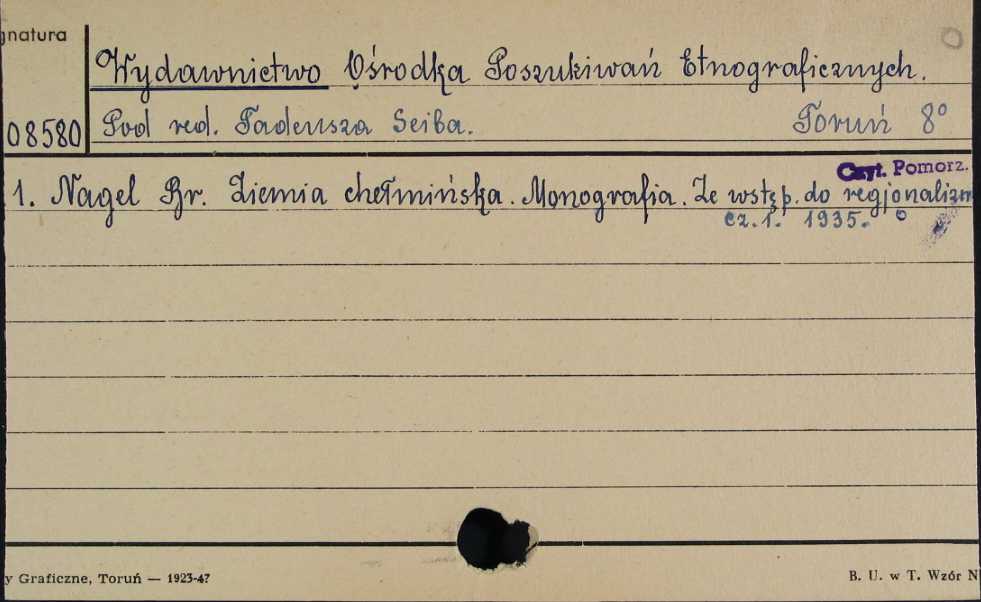 gnatura
Wydawnictwo Ośrodka Poszukiwań Etnograficznych.
08580 Pod red. Tadeusza Seiba. Toruń 8°
Czyt. Pomorz.
1. Nagel Br. Ziemia chełmińska. Monografia. Ze wstęp. do regjonalizm
cz. 1. 1935.
y Graficzne, Toruń — 1923-47
B. U. w T. Wzór N